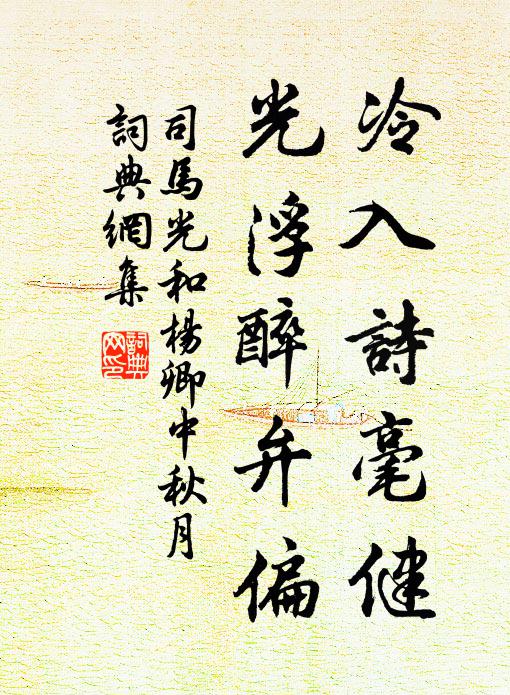 冷入詩毫健
光浮醉弁偏
司馬光和楊卿中秋月
詞典網集
詞典
网印